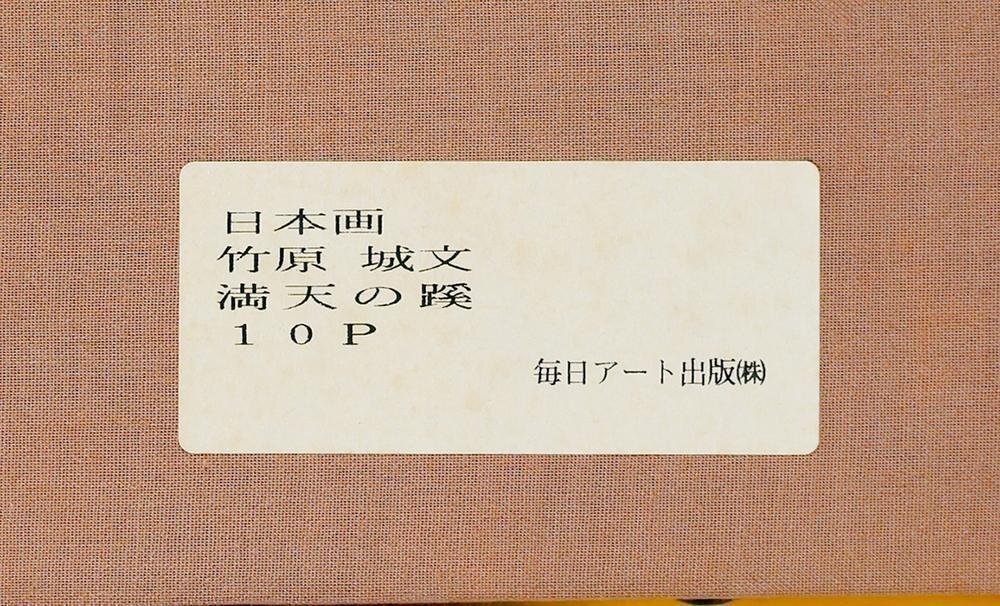 日本画
竹原 城文
満天の蹊
10P
毎日アート出版㈱